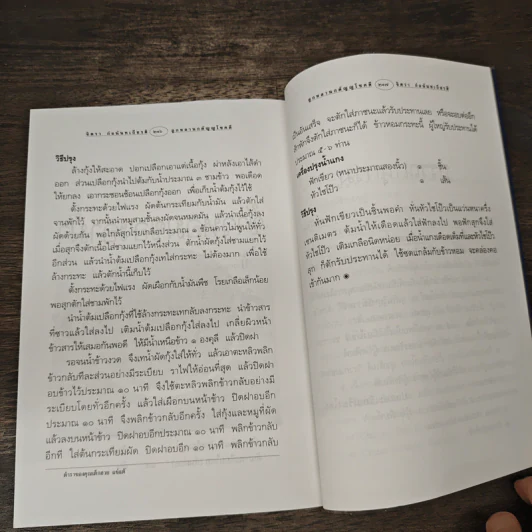 จิตรา ก่อนันทเกียรติ ๑๓๖ ลูกหลานกตัญญูโชคดี
วิธีปรุง
ล้างกุ้งให้สะอาด ปอกเปลือกเอาแต่เนื้อกุ้ง ผ่าหลังเอาไส้ดำ
ออก ส่วนเปลือกกุ้งนำไปต้มกับน้ำประมาณ ๓ ชามข้าว พอเดือดก็
ให้ยกลง เอากระชอนช้อนเปลือกกุ้งออก เพื่อเก็บน้ำต้มกุ้งไว้ใช้
ตั้งกระทะด้วยไฟแรง ผัดต้นกระเทียมกับน้ำมัน แล้วตักใส่
จานพักไว้ จากนั้นนำหมูสามชั้นลงผัดจนหมดมัน แล้วนำเนื้อกุ้งลง
ผัดด้วยกัน พอใกล้สุกโรยเกลือประมาณ ๑ ช้อนคาวไม่พูนให้ทั่ว
เมื่อสุกจึงตักเนื้อใส่ชามแยกไว้หนึ่งส่วน ตักน้ำผัดกุ้งใส่ชามแยกไว้
อีกส่วน แล้วนำน้ำต้มเปลือกกุ้งเทใส่กระทะ ไม่ต้องมาก เพื่อใช้
ล้างกระทะ แล้วตักน้ำนี้เก็บไว้
ตั้งกระทะด้วยไฟแรง ผัดเผือกกับน้ำมันพืช โรยเกลือเล็กน้อย
พอสุกตักใส่ชามพักไว้
นำน้ำต้มเปลือกกุ้งที่ใช้ล้างกระทะเทกลับลงกระทะ นำข้าวสาร
ที่ซาวแล้วใส่ลงไป เติมน้ำต้มเปลือกกุ้งใส่ลงไป เกลี่ยผิวหน้า
ข้าวสารให้เสมอกันพอดี ให้มีน้ำเหนือข้าว ๑ องคุลี แล้วปิดฝา
รอจนน้ำข้าวงวด จึงเทน้ำผัดกุ้งใส่ให้ทั่ว แล้วเอาตะหลิวพลิก
ข้าวกลับทีละส่วนอย่างมีระเบียบ ราไฟให้อ่อนที่สุด แล้วปิดฝา
อบข้าวไว้ประมาณ ๑๐ นาที จึงใช้ตะหลิวพลิกข้าวกลับอย่างมี
ระเบียบโดยทั่วอีกครั้ง แล้วใส่เผือกบนหน้าข้าว ปิดฝาอบอีก
ประมาณ ๑๐ นาที จึงพลิกข้าวกลับอีกครั้ง ใส่กุ้งและหมูที่ผัด
แล้วลงบนหน้าข้าว ปิดฝาอบอีกประมาณ ๑๐ นาที พลิกข้าวกลับ
อีกที ใส่ต้นกระเทียมผัด ปิดฝาอบอีก ๑๐ นาที พลิกข้าวกลับ
ตำราของคุณเต็กฮวย
ลูกหลานกตัญญูโชคดี ๑๓๗ จิตรา ก่อนันทเกียรติ
เป็นอันเสร็จ จะตักใส่ภาชนะแล้วรับประทานเลย หรือจะอบต่ออีก
สักพักจึงตักใส่ภาชนะก็ได้ ข้าวหอมกระทะนี้ ผู้ใหญ่รับประทานได้
ประมาณ ๕-๖ ท่าน
เครื่องปรุงน้ำแกง
ฟักเขียว (หนาประมาณสองนิ้ว) ๑ ชิ้น
หัวไชโป๊ว ๑ เส้น
วิธีปรุง
หั่นฟักเขียวเป็นชิ้นพอคำ หั่นหัวไชโป๊วเป็นแว่นหนาครึ่ง
เซนติเมตร ต้มน้ำให้เดือดแล้วใส่ฟักลงไป พอฟักสุกจึงใส่
หัวไชโป๊ว เติมเกลือนิดหน่อย เมื่อน้ำแกงเดือดเต็มที่และหัวไชโป๊ว
สุก ก็ตักรับประทานได้ ใช้ซดแกล้มกับข้าวหอม จะคล่องคอ
เข้ากันมาก ◉